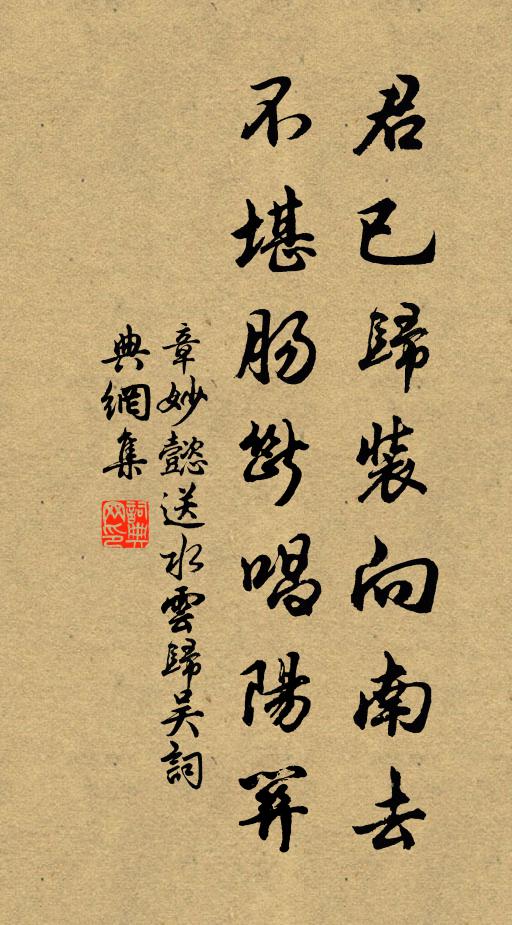 君已歸裝向南去
不堪腸斷唱陽關
章妙懿送水雲歸吳詞
典網集
詞典網印